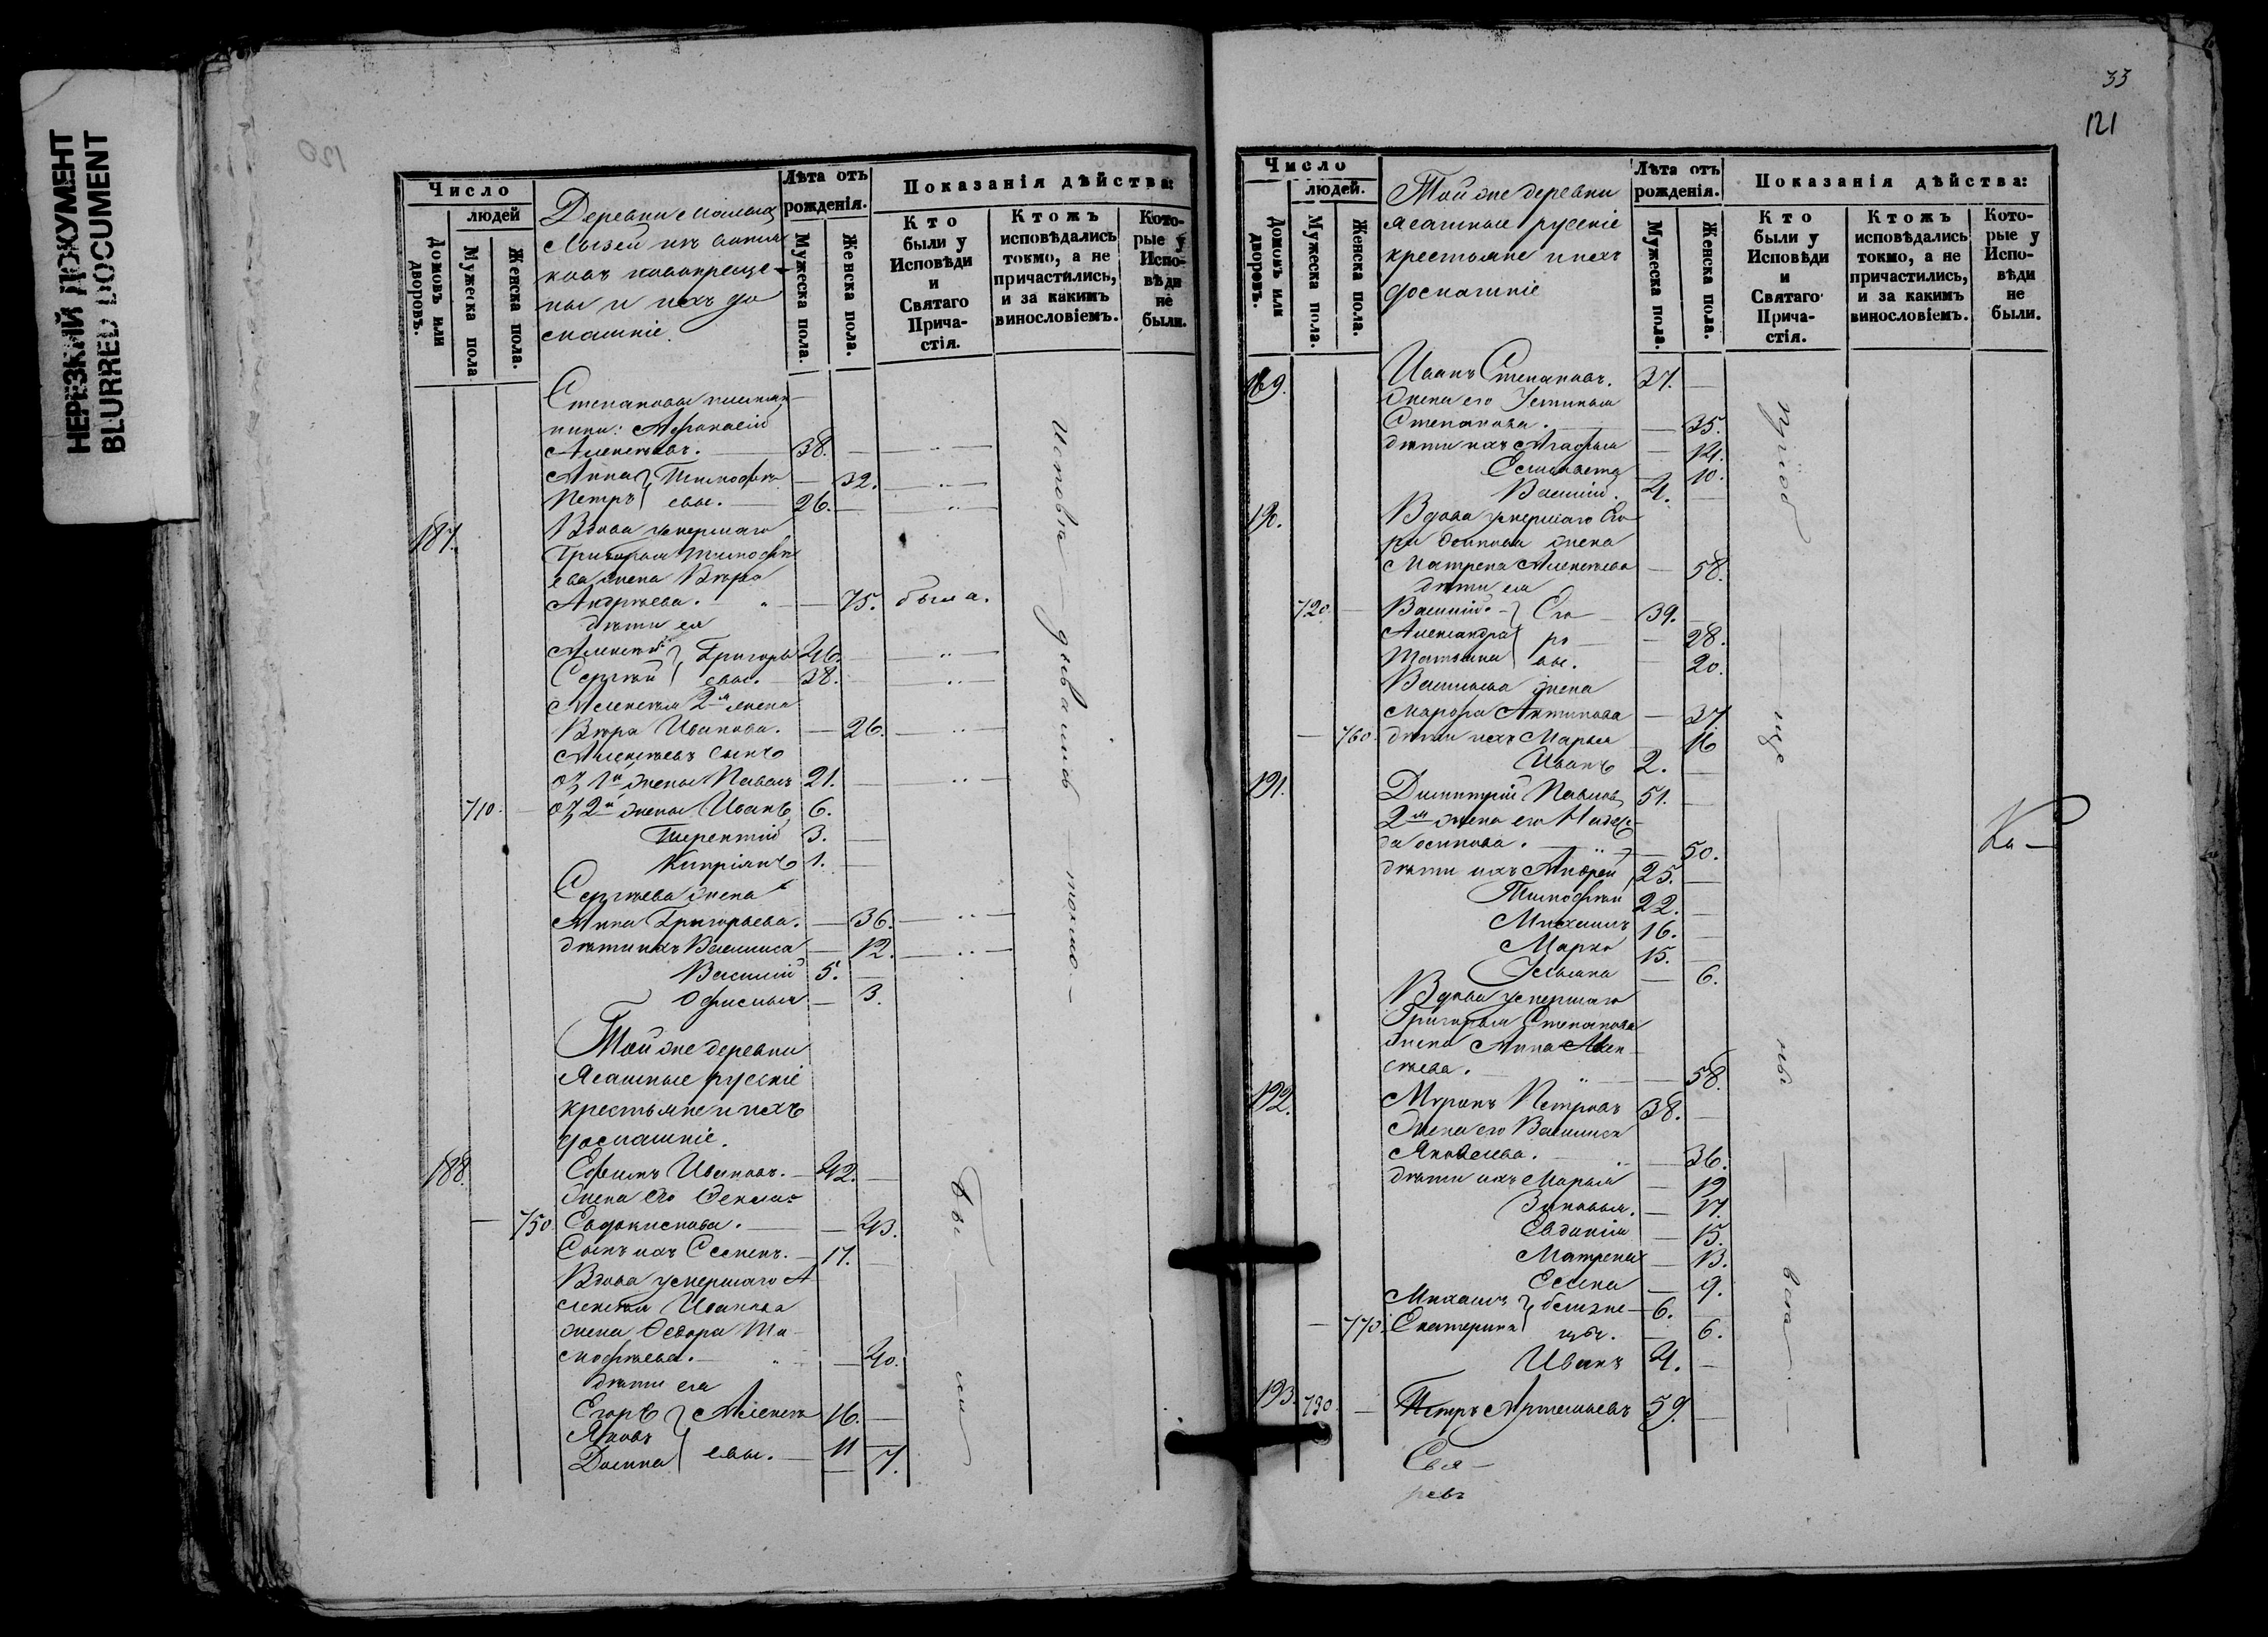 НЕРЕЗКИЙ ДОКУМЕНТ
BLURRED DOCUMENT
120
Число
людей
Домовъ или дворовъ.
Мужеска пола
Женска пола.
Деревни Малыхъ
новокреще-
ны и ихъ до
машніе.
Лѣта отъ рожденія.
Мужеска пола.
Женска пола.
Показанія дѣйства:
Кто были у Исповѣди и Святаго Прича-стія.
Ктожъ исповѣдались токмо, а не причастились, и за какимъ винословіемъ.
Кото-рые у Испо-вѣди не были.
Степановы племян-
ники: Афанасій
Алексѣевъ. 38.
Анна } Тимофѣ 32.
Петръ } евы. 26.
187. Вдова умершаго
Григорья Тимофѣ
ева жена Вѣра
Андрѣева. 75. была.
дѣти ея
Алексѣй } Григорь 46.
Сергѣй } евы. 38.
Алексѣя 2я жена
Вѣра Иванова. 26.
Алексѣевъ сынъ
отъ 1й жены Павелъ 21.
710. отъ 2й жены Иванъ 6.
Терентій 3.
Кипріянъ 1.
Сергѣева жена
Анна Григорьева. 36.
дѣти ихъ Василиса 12.
Василій 5.
Офимья 3.
Той же деревни
Ясашные русскіе
крестьяне и ихъ
домашніе.
188. Ефимъ Ивановъ. 42.
Жена его Фекла
750 Евдокимова. 43.
Сынъ ихъ Семенъ. 17.
Вдова умершаго А
лексѣя Иванова
жена Федора Ти-
мофѣева. 40.
дѣти ея
Егоръ } Алексѣ 16.
Яковъ 11
Домна } евы. 7.
токмо
бы ли
33
121
Число
людей.
Домовъ или дворовъ.
Мужеска пола.
Женска пола.
Той же деревни
ясашные русскіе
крестьяне и ихъ
домашніе
Лѣта отъ рожденія.
Мужеска пола.
Женска пола.
Показанія дѣйства:
Кто были у Исповѣди и Святаго Прича-стія.
Ктожъ исповѣдались токмо, а не причастились, и за какимъ винословіемъ.
Кото-рые у Испо-вѣди не были.
189. Иванъ Степановъ. 37.
Жена его Устинья
Степанова. 35.
дѣти ихъ Агафья 14.
Елисавета 10.
Василій. 4.
190. Вдова умершаго Его
ра Осипова жена
Матрена Алексѣева 58.
дѣти ея
720. Василій } Его 39.
Александра } ро 28.
Татьяна } вы. 20.
Васильева жена
Марфа Антипова 37
760. дѣти ихъ Марья 16
Иванъ 2.
191. Димитрій Павловъ 51.
2я жена его Надеж-
да Осипова. 50.
дѣти ихъ Андрей 25.
Тимофѣй 22.
Михаилъ 16.
Марко 15.
Ульяна 6.
Вдова умершаго
Григорья Степанова
жена Анна Алек-
сѣева. 58.
192. Миронъ Петровъ 38.
Жена его Василиса
Яковлева. 36.
дѣти ихъ Марья 19
Зиновья. 17.
Евдокія 15.
Матрена 13.
Елена 9.
Михаилъ } близне 6.
770. Екатерина } цы. 6.
Иванъ 4.
193. 730. Петръ Артемьевъ 59.